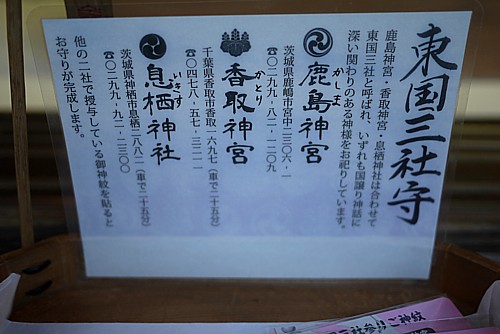 東国三社守
鹿島神宮・香取神宮・息栖神社は合わせて
東国三社と呼ばれ、いずれも国譲り神話に
深い関わりのある神様をお祀りしています。
かしま
鹿島神宮
茨城県鹿嶋市宮中二三〇六-一
☎〇二九九-八二-一二〇九
かとり
香取神宮
千葉県香取市香取一六九七(車で二十五分)
☎〇四七八-五七-三二一一
いきす
息栖神社
茨城県神栖市息栖二八八二(車で二十五分)
☎〇二九九-九二-二三〇〇
他の二社で授与している御神紋を貼ると
お守りが完成します。
三社参りご神紋